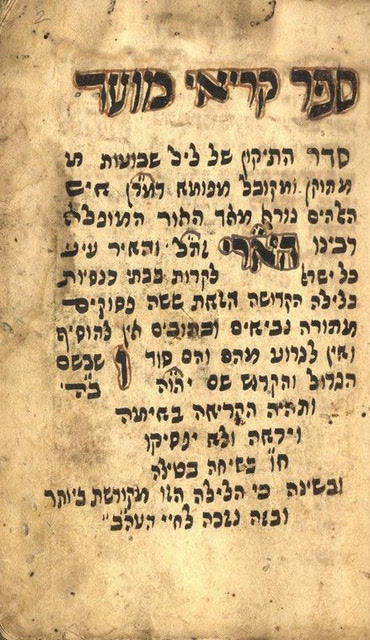 2
ספר קריאי מועד
סדר התיקון של ליל שבועות
מתוקן ומקובל מפומא דמרן איש
האלהים נורא מאד האור המופלא
רבינו האר״י זלה״ה והאיר עיני
כל ישראל לקרות בבתי כנסיות
בלילה הקדושה הזאת ששה פסוקים
מתורה נביאים וכתובים אין להוסיף
ואין לגרוע מהם והם סוד ו שבשם
הגדול והקדוש שם יהוה ב״ה
ותהיה הקריאה באימה
ויראה ולא יפסיקו
ח״ו בשיחה בטילה
ובשינה כי הלילה הזו מקודשת ביותר
ובזה נזכה לחיי העה״ב